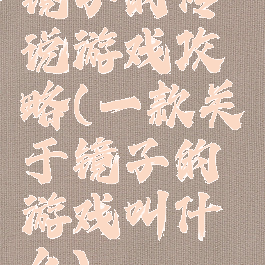 镜子的传
说游戏攻
略(一款关
于镜子的
游戏叫什
么)